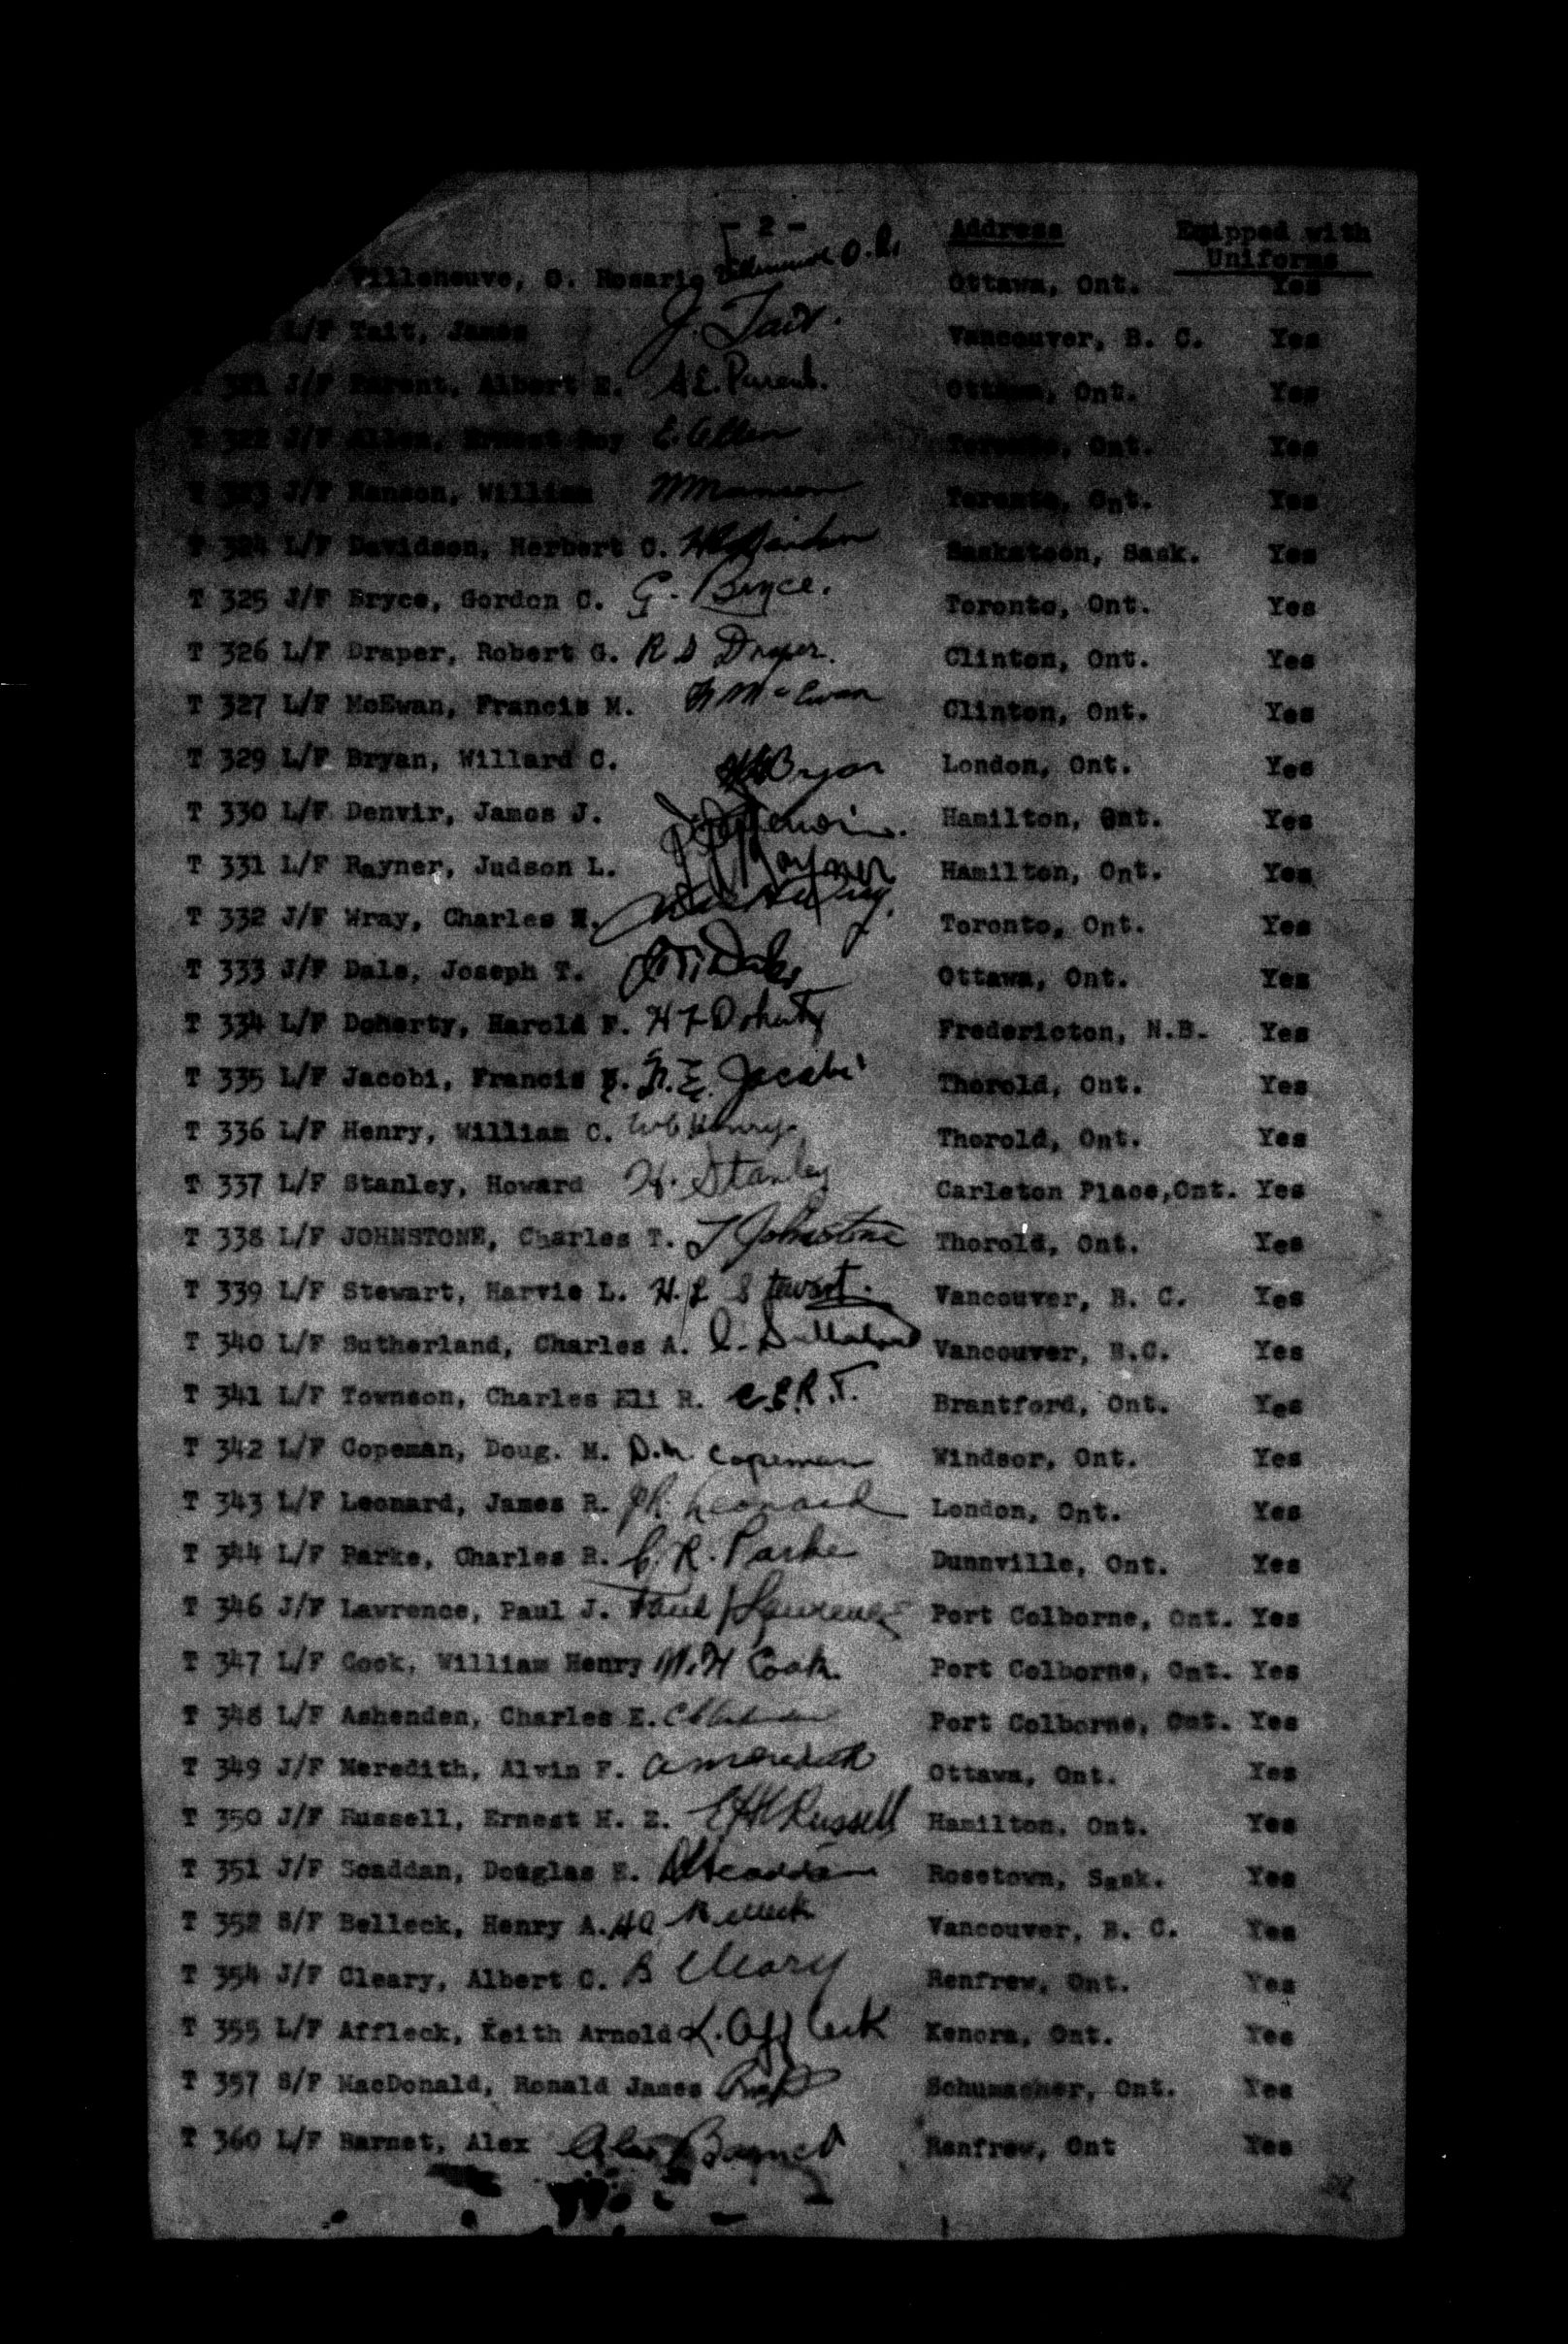 - 2 -
Address Equipped with
Uniforms
Villeneuve, O. Rosario Villeneuve O.R. Ottawa, Ont. Yes
L/F Tait, James J. Tait. Vancouver, B. C. Yes
321 J/F Parent, Albert E. A.E. Parent. Ottawa, Ont. Yes
T 322 J/F Allen, Ernest Roy E. Allen Toronto, Ont. Yes
T 323 J/F Manson, William W Manson Toronto, Ont. Yes
T 324 L/F Davidson, Herbert C. Saskatoon, Sask. Yes
T 325 J/F Bryce, Gordon C. G. Bryce. Toronto, Ont. Yes
T 326 L/F Draper, Robert G. R G Draper. Clinton, Ont. Yes
T 327 L/F McEwan, Francis M. F M McEwan Clinton, Ont. Yes
T 329 L/F Bryan, Willard C. W C Bryan London, Ont. Yes
T 330 L/F Denvir, James J. Hamilton, Ont. Yes
T 331 L/F Rayner, Judson L. Rayner Hamilton, Ont. Yes
T 332 J/F Wray, Charles H. Toronto, Ont. Yes
T 333 J/F Dale, Joseph T. J. T. Dale Ottawa, Ont. Yes
T 334 L/F Doherty, Harold F. H F Doherty Fredericton, N.B. Yes
T 335 L/F Jacobi, Francis E. F. E. Jacobi Thorold, Ont. Yes
T 336 L/F Henry, William C. W C Henry. Thorold, Ont. Yes
T 337 L/F Stanley, Howard H. Stanley Carleton Place,Ont. Yes
T 338 L/F JOHNSTONE, Charles T. T Johnstone Thorold, Ont. Yes
T 339 L/F Stewart, Harvie L. H. L Stewart. Vancouver, B. C. Yes
T 340 L/F Sutherland, Charles A. C. Sutherland Vancouver, B.C. Yes
T 341 L/F Townson, Charles Eli R. C.E.R.T. Brantford, Ont. Yes
T 342 L/F Copeman, Doug. M. D.M. Copeman Windsor, Ont. Yes
T 343 L/F Leonard, James R. J.R. Leonard London, Ont. Yes
T 344 L/F Parke, Charles R. C. R. Parke Dunnville, Ont. Yes
T 346 J/F Lawrence, Paul J. Paul J Lawrence Port Colborne, Ont. Yes
T 347 L/F Cook, William Henry W. H Cook. Port Colborne, Ont. Yes
T 348 L/F Ashenden, Charles E. C E Ashenden Port Colborne, Ont. Yes
T 349 J/F Meredith, Alvin F. A Meredith Ottawa, Ont. Yes
T 350 J/F Russell, Ernest H. E. E H Russell Hamilton, Ont. Yes
T 351 J/F Scaddan, Douglas H. D H Scaddan Rosetown, Sask. Yes
T 352 S/F Belleck, Henry A. H A Belleck Vancouver, B. C. Yes
T 354 J/F Cleary, Albert C. A Cleary Renfrew, Ont. Yes
T 355 L/F Affleck, Keith Arnold K. Affleck Kenora, Ont. Yes
T 357 S/F MacDonald, Ronald James Schumacher, Ont. Yes
T 360 L/F Barnet, Alex Alex Barnet Renfrew, Ont Yes